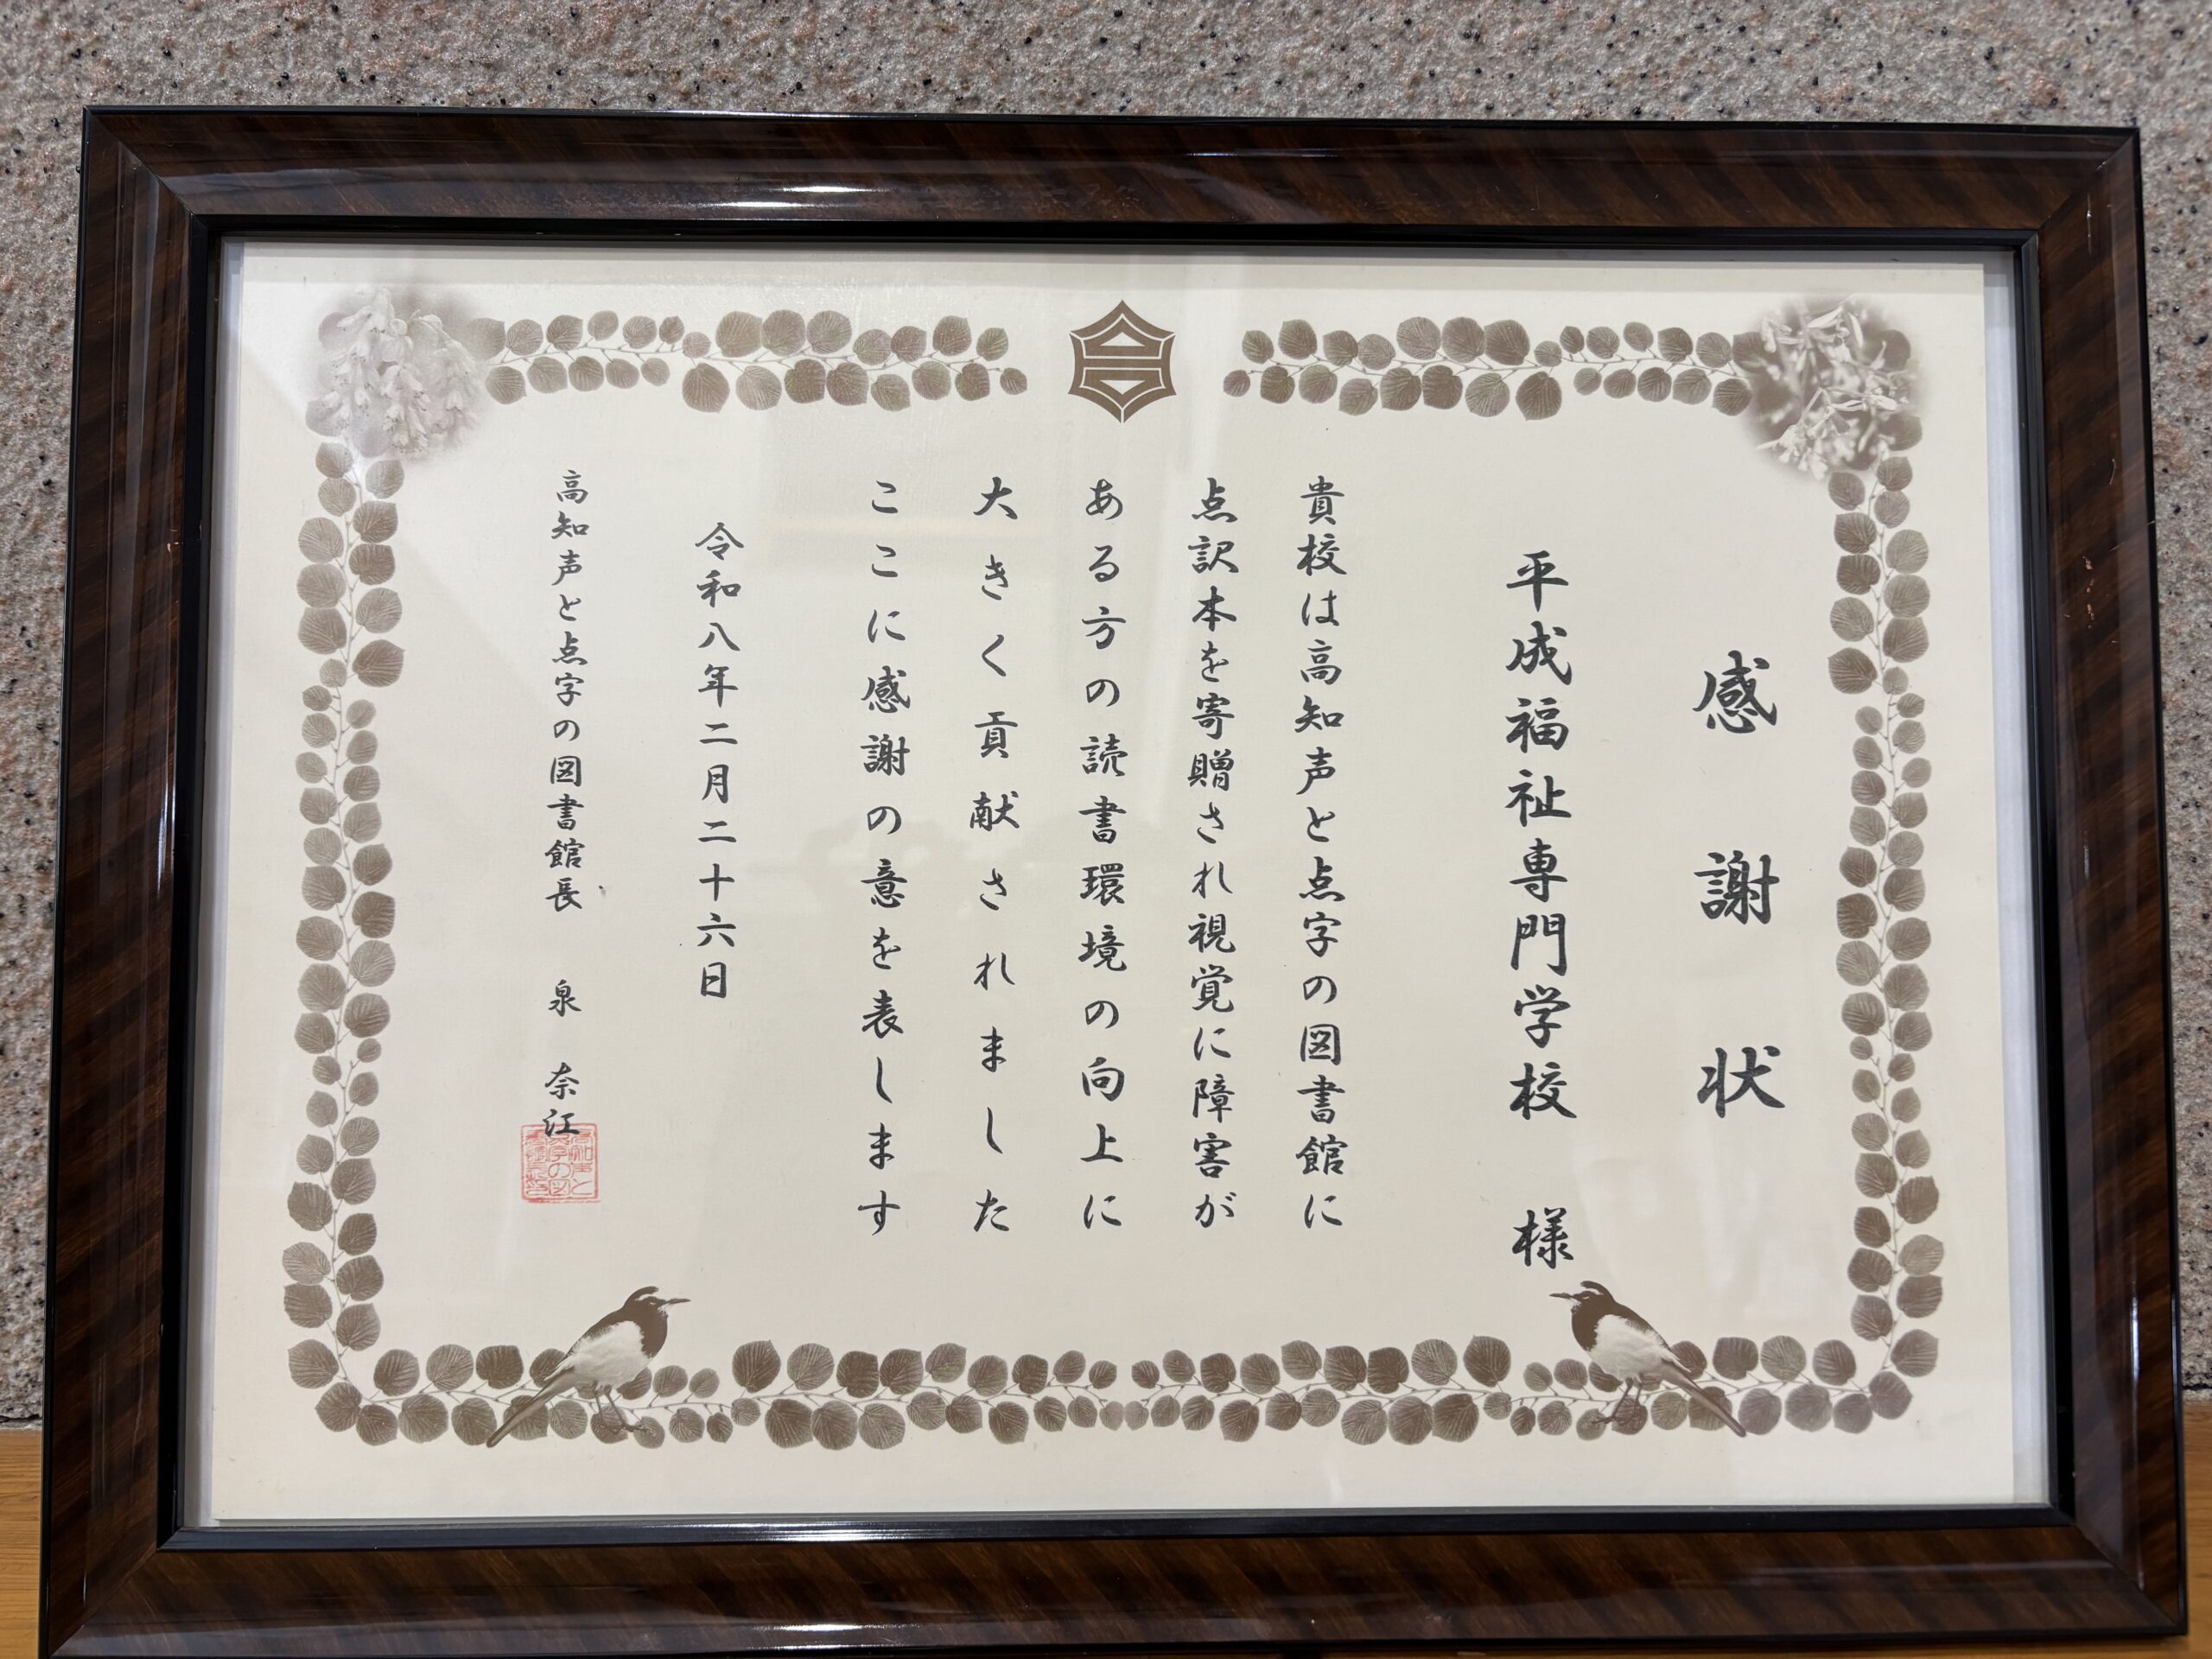 感謝状
平成福祉専門学校 様
貴校は高知声と点字の図書館に
点訳本を寄贈され視覚に障害が
ある方の読書環境の向上に
大きく貢献されました
ここに感謝の意を表します
令和八年二月二十六日
高知声と点字の図書館長 泉 奈江